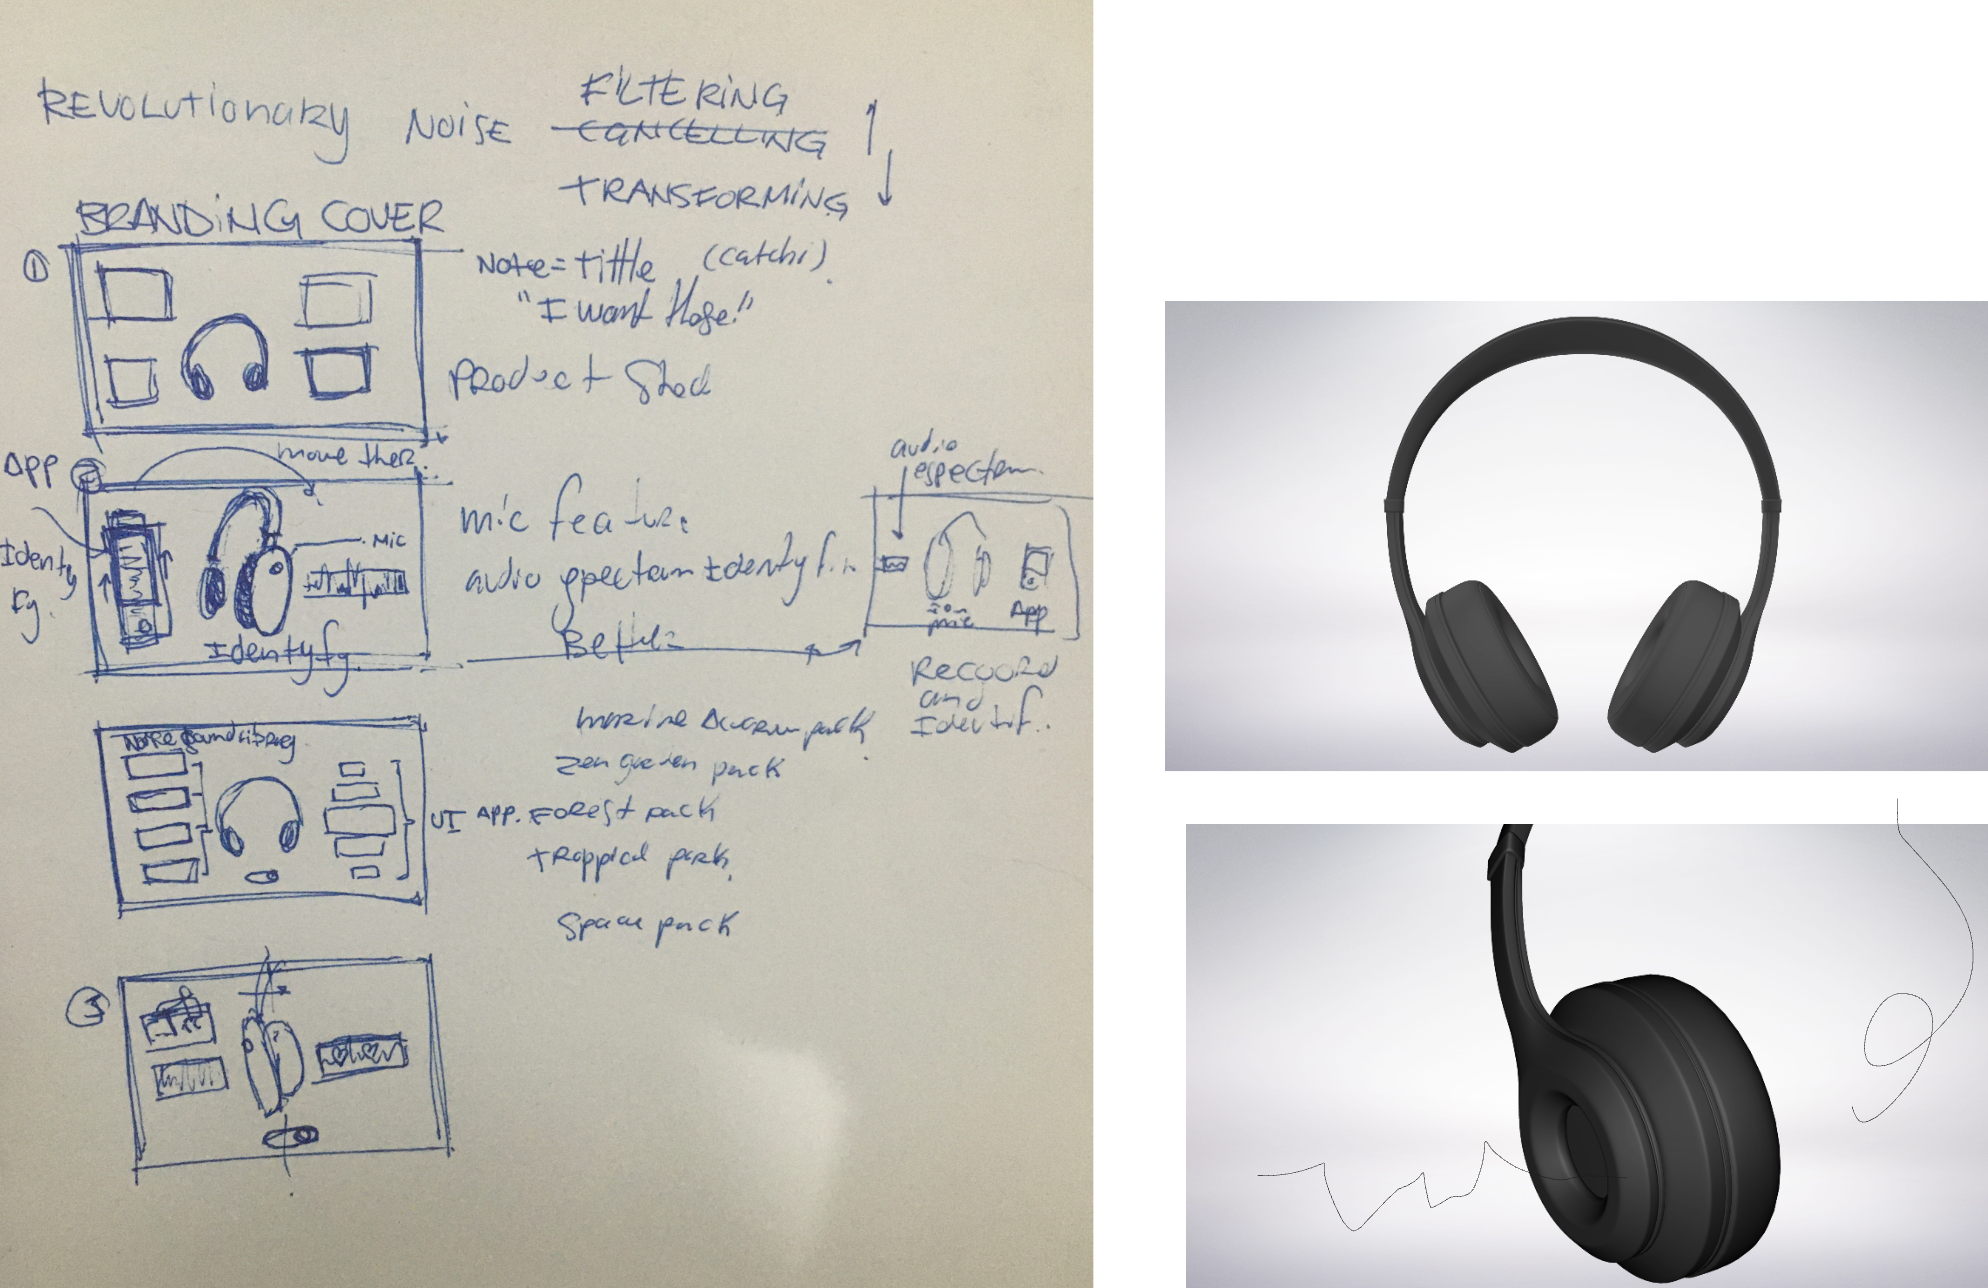 FILTERING
REVOLUTIONARY NOISE CANCELLING
TRANSFORMING
BRANDING COVER
1
Note = tittle (catchi).
"I want those!"
Product Shot
move ther..
APP
2
Identy
fy.
Mic
Identyfy.
mic feature
audio spectrum Identyf..
Better
audio
espectrum.
mic
App
Record
and
Identif..
Noise Sound library
UI APP.
marine pack
Zen garden pack
Forest pack
troppical pack
Space pack
3